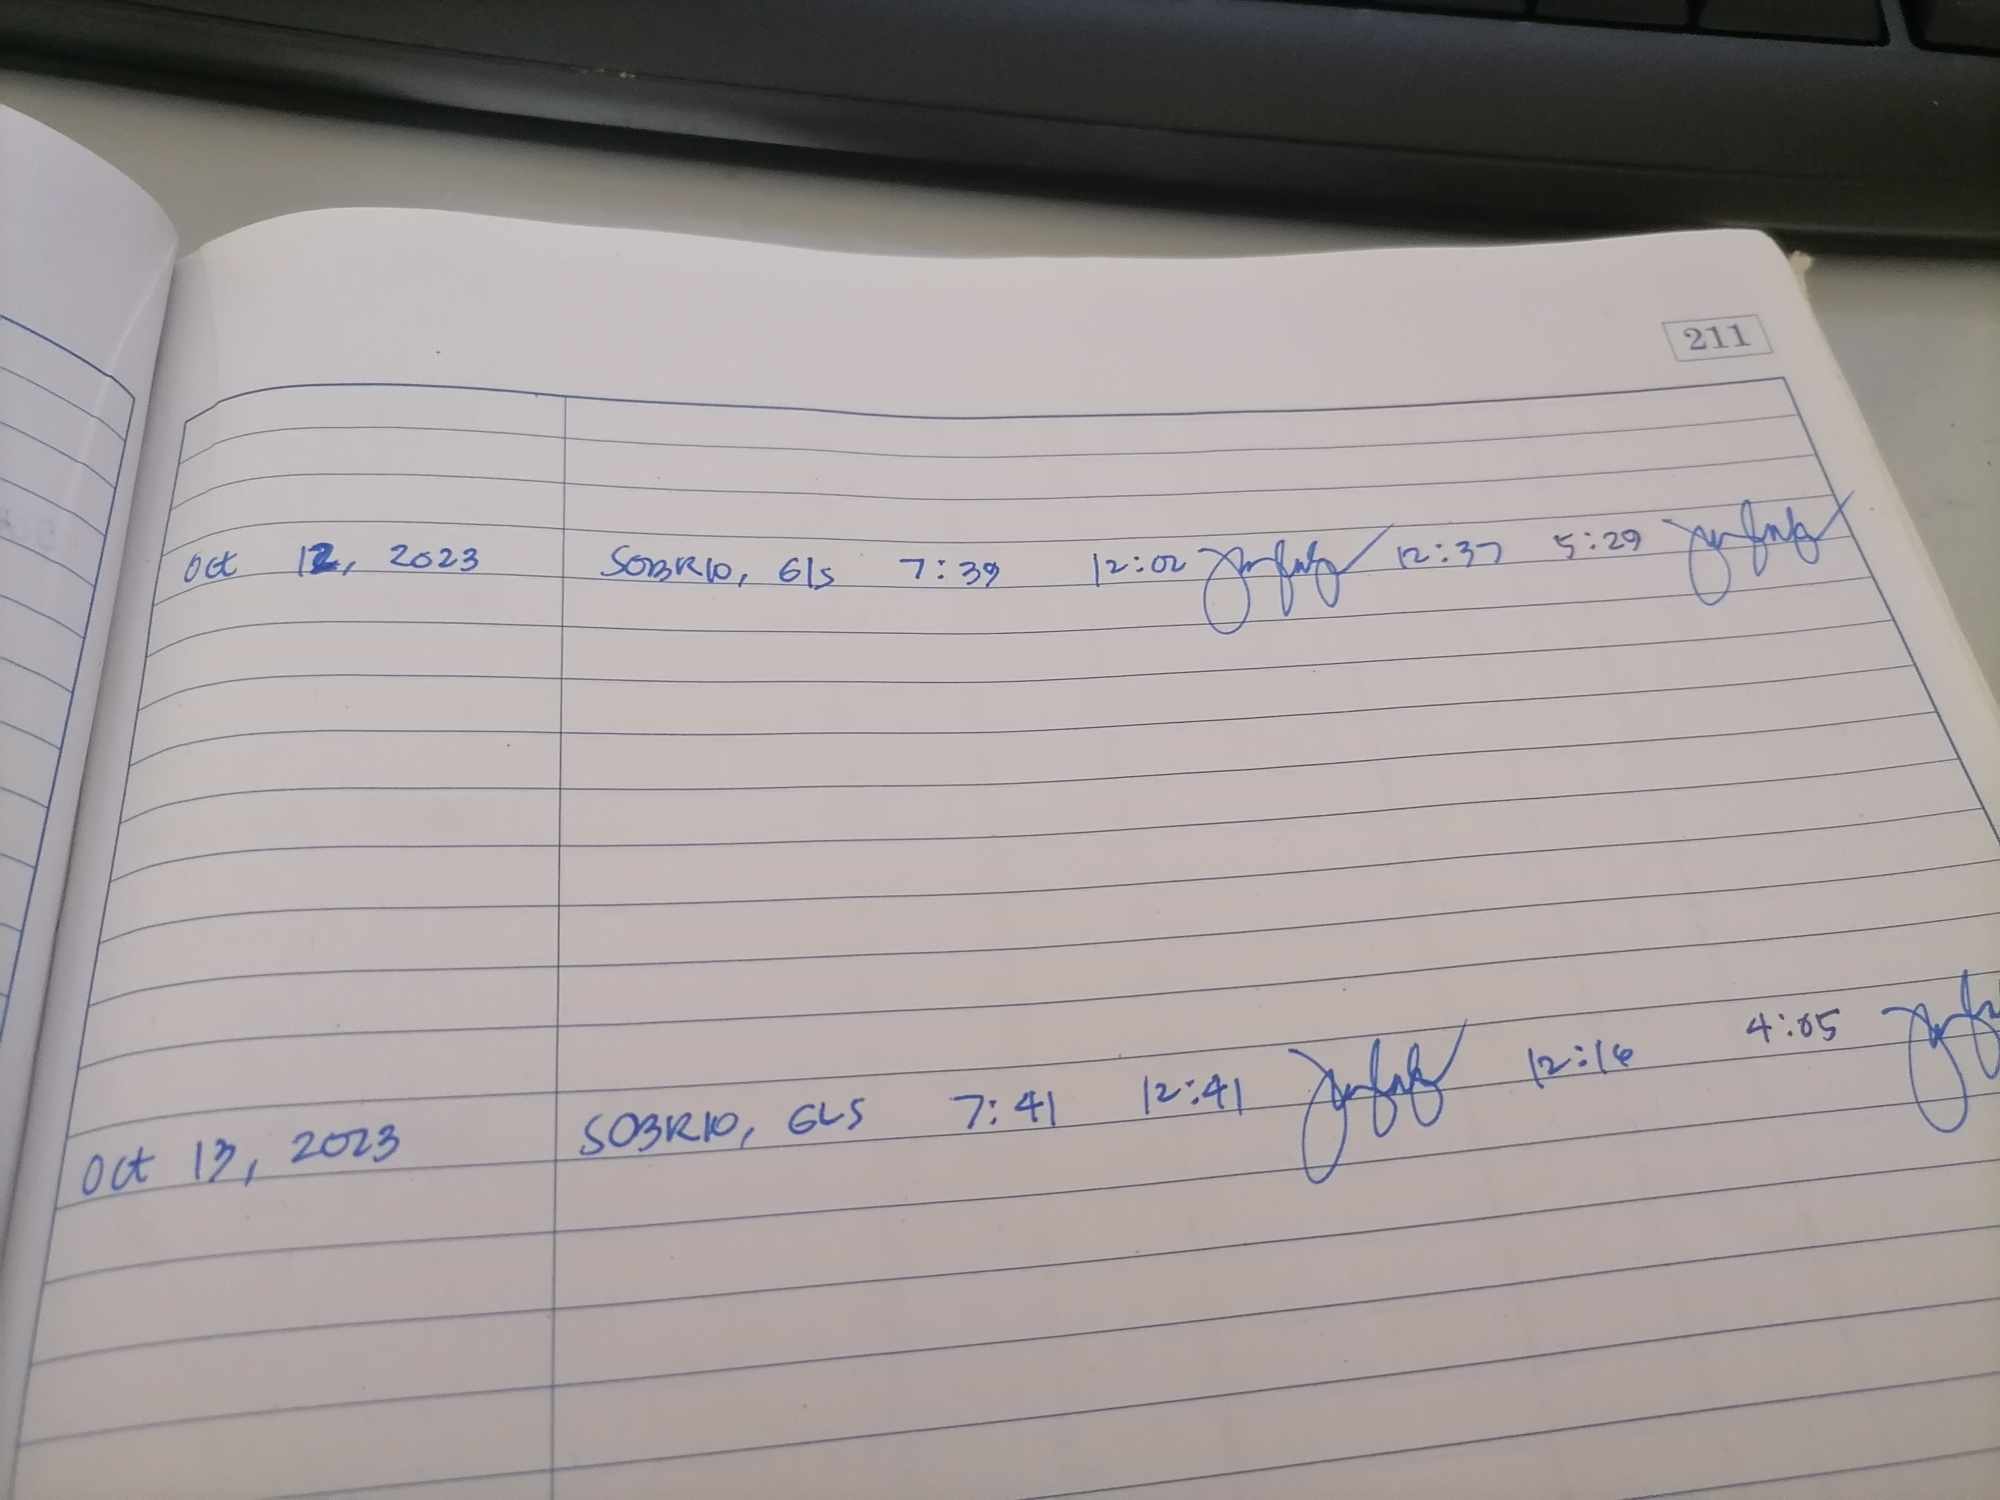 211
Oct 12, 2023 SOBRIO, GLS 7:39 12:02 12:37 5:29
Oct 13, 2023 SOBRIO, GLS 7:41 12:41 12:16 4:05